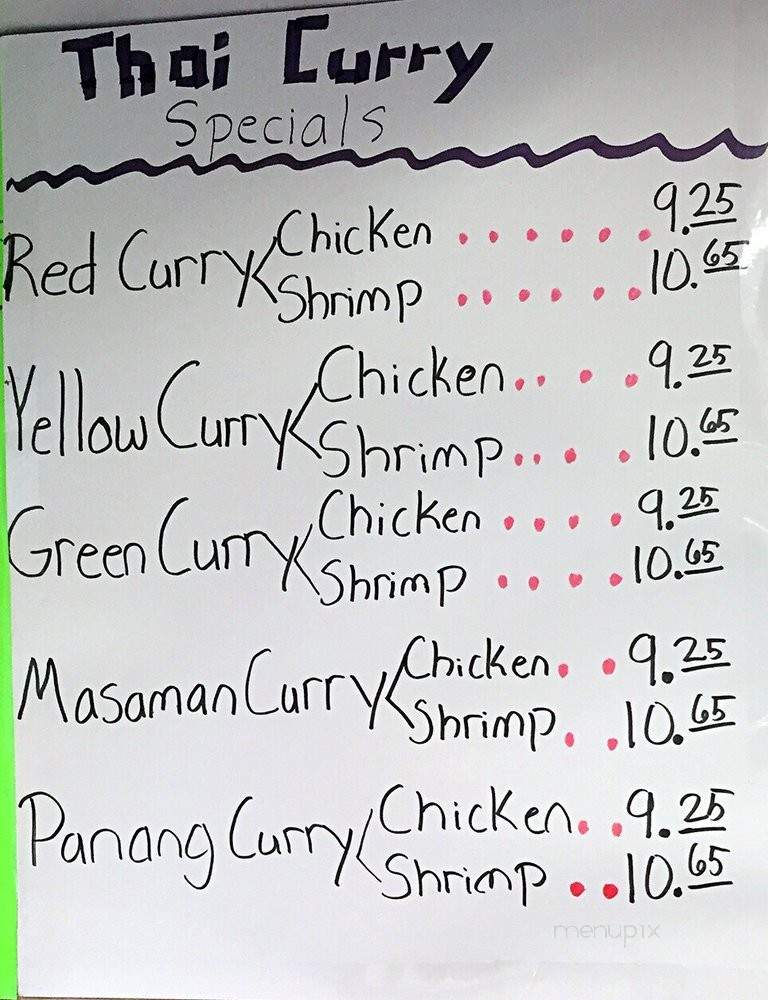 Thai Curry
Specials
Red Curry < Chicken . . . . . . 9.25
Shrimp . . . . . . 10.65
Yellow Curry < Chicken . . . . 9.25
Shrimp . . . . 10.65
Green Curry < Chicken . . . . 9.25
Shrimp . . . . 10.65
Masaman Curry < Chicken . . 9.25
Shrimp . . 10.65
Panang Curry < Chicken . . 9.25
Shrimp . . 10.65
menupix